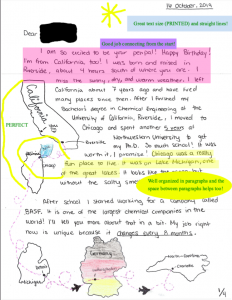 14 October, 2019
Great text size (PRINTED) and straight lines!
Dear
Good job connecting from the start!
I am so excited to be your penpal! Happy Birthday!
I'm from California, too! I was born and raised in
Riverside, about 4 hours south of where you are. I
miss the sunny, dry, and warm weather. I left
California about 7 years ago and have lived
many places since then. After I finished my
Bachelors degree in Chemical Engineering at the
University of California, Riverside, I moved to
Chicago and spent another 5 years at
Northwestern University to get
my Ph.D. So much school! It was
worth it, I promise! Chicago was a really
fun place to live. It was on Lake Michigan, one
of the great lakes. It looks like the
without the salty
California
Riverside
PERFECT
Illinois
Chicago
Well organized in paragraphs and the
space between paragraphs helps too!
After school I started working for a company called
BASF. It is one of the largest chemical companies in the
world! I'll tell you more about that in a bit. My job right
now is unique because it changes every 8 months.
Germany
North Carolina
Charlotte
1/4